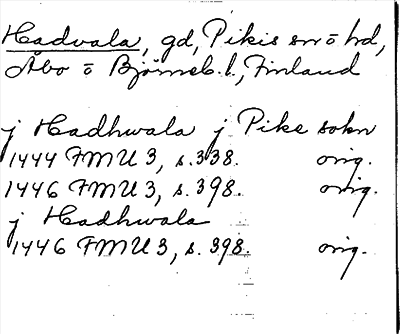 Hadvala, gd, Pikis sn o hd,
Åbo o Björneb. l., Finland
j Hadhwala j Pike sokn
1444 FMU 3, s. 338. orig.
1446 FMU 3, s. 398. orig.
j Hadhwala
1446 FMU 3, s. 398. orig.